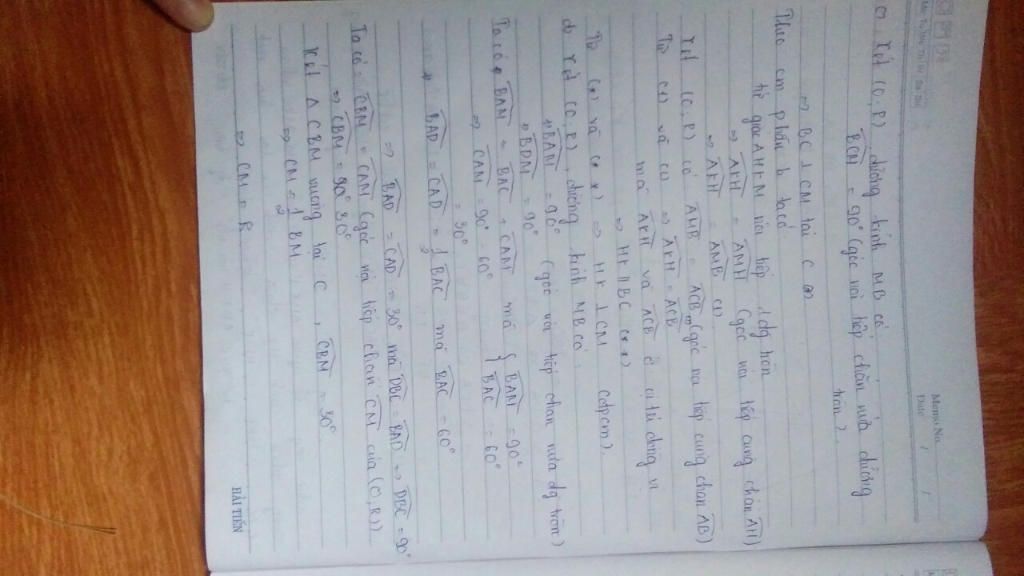 Memo No.
Date / /
c, Xét (O,R), đường kính MB có
BCM = 90° (góc nội tiếp chắn nửa đường tròn).
⇒ BC ⊥ CM tại C (*)
Theo cm phần b ta có
tứ giác AHKM nội tiếp đg tròn
⇒ AKH = AMH (góc nội tiếp cung chắn AH)
⇒ AKH = AMB (1)
Xét (O,R) có AMB = ACB (góc nội tiếp cung chắn AB)
Từ (1) và (2) ⇒ AKH = ACB
mà AKH và ACB ở vị trí đồng vị
⇒ HK // BC (**)
Từ (*) và (**) ⇒ HK ⊥ CM (đpcm).
d, Xét (O,R), đường kính MB có:
BAM = 90° (góc nội tiếp chắn nửa đg tròn)
BDM = 90°
Ta có BAM = BAC + CAM mà { BAM = 90°
BAC = 60°
⇒ CAM = 90° - 60°
= 30°
BAD = CAD = 1/2 BAC mà BAC = 60°
⇒ BAD = CAD = 30° mà DBC = BAD ⇒ DBC =
Ta có: CBM = CAM (góc nội tiếp chắn CM của (O,R))
⇒ CBM = 30°
Xét Δ CBM vuông tại C, CBM = 30°
⇒ CM = 1/2 BM
⇒ CM = R
HẢI TIẾN